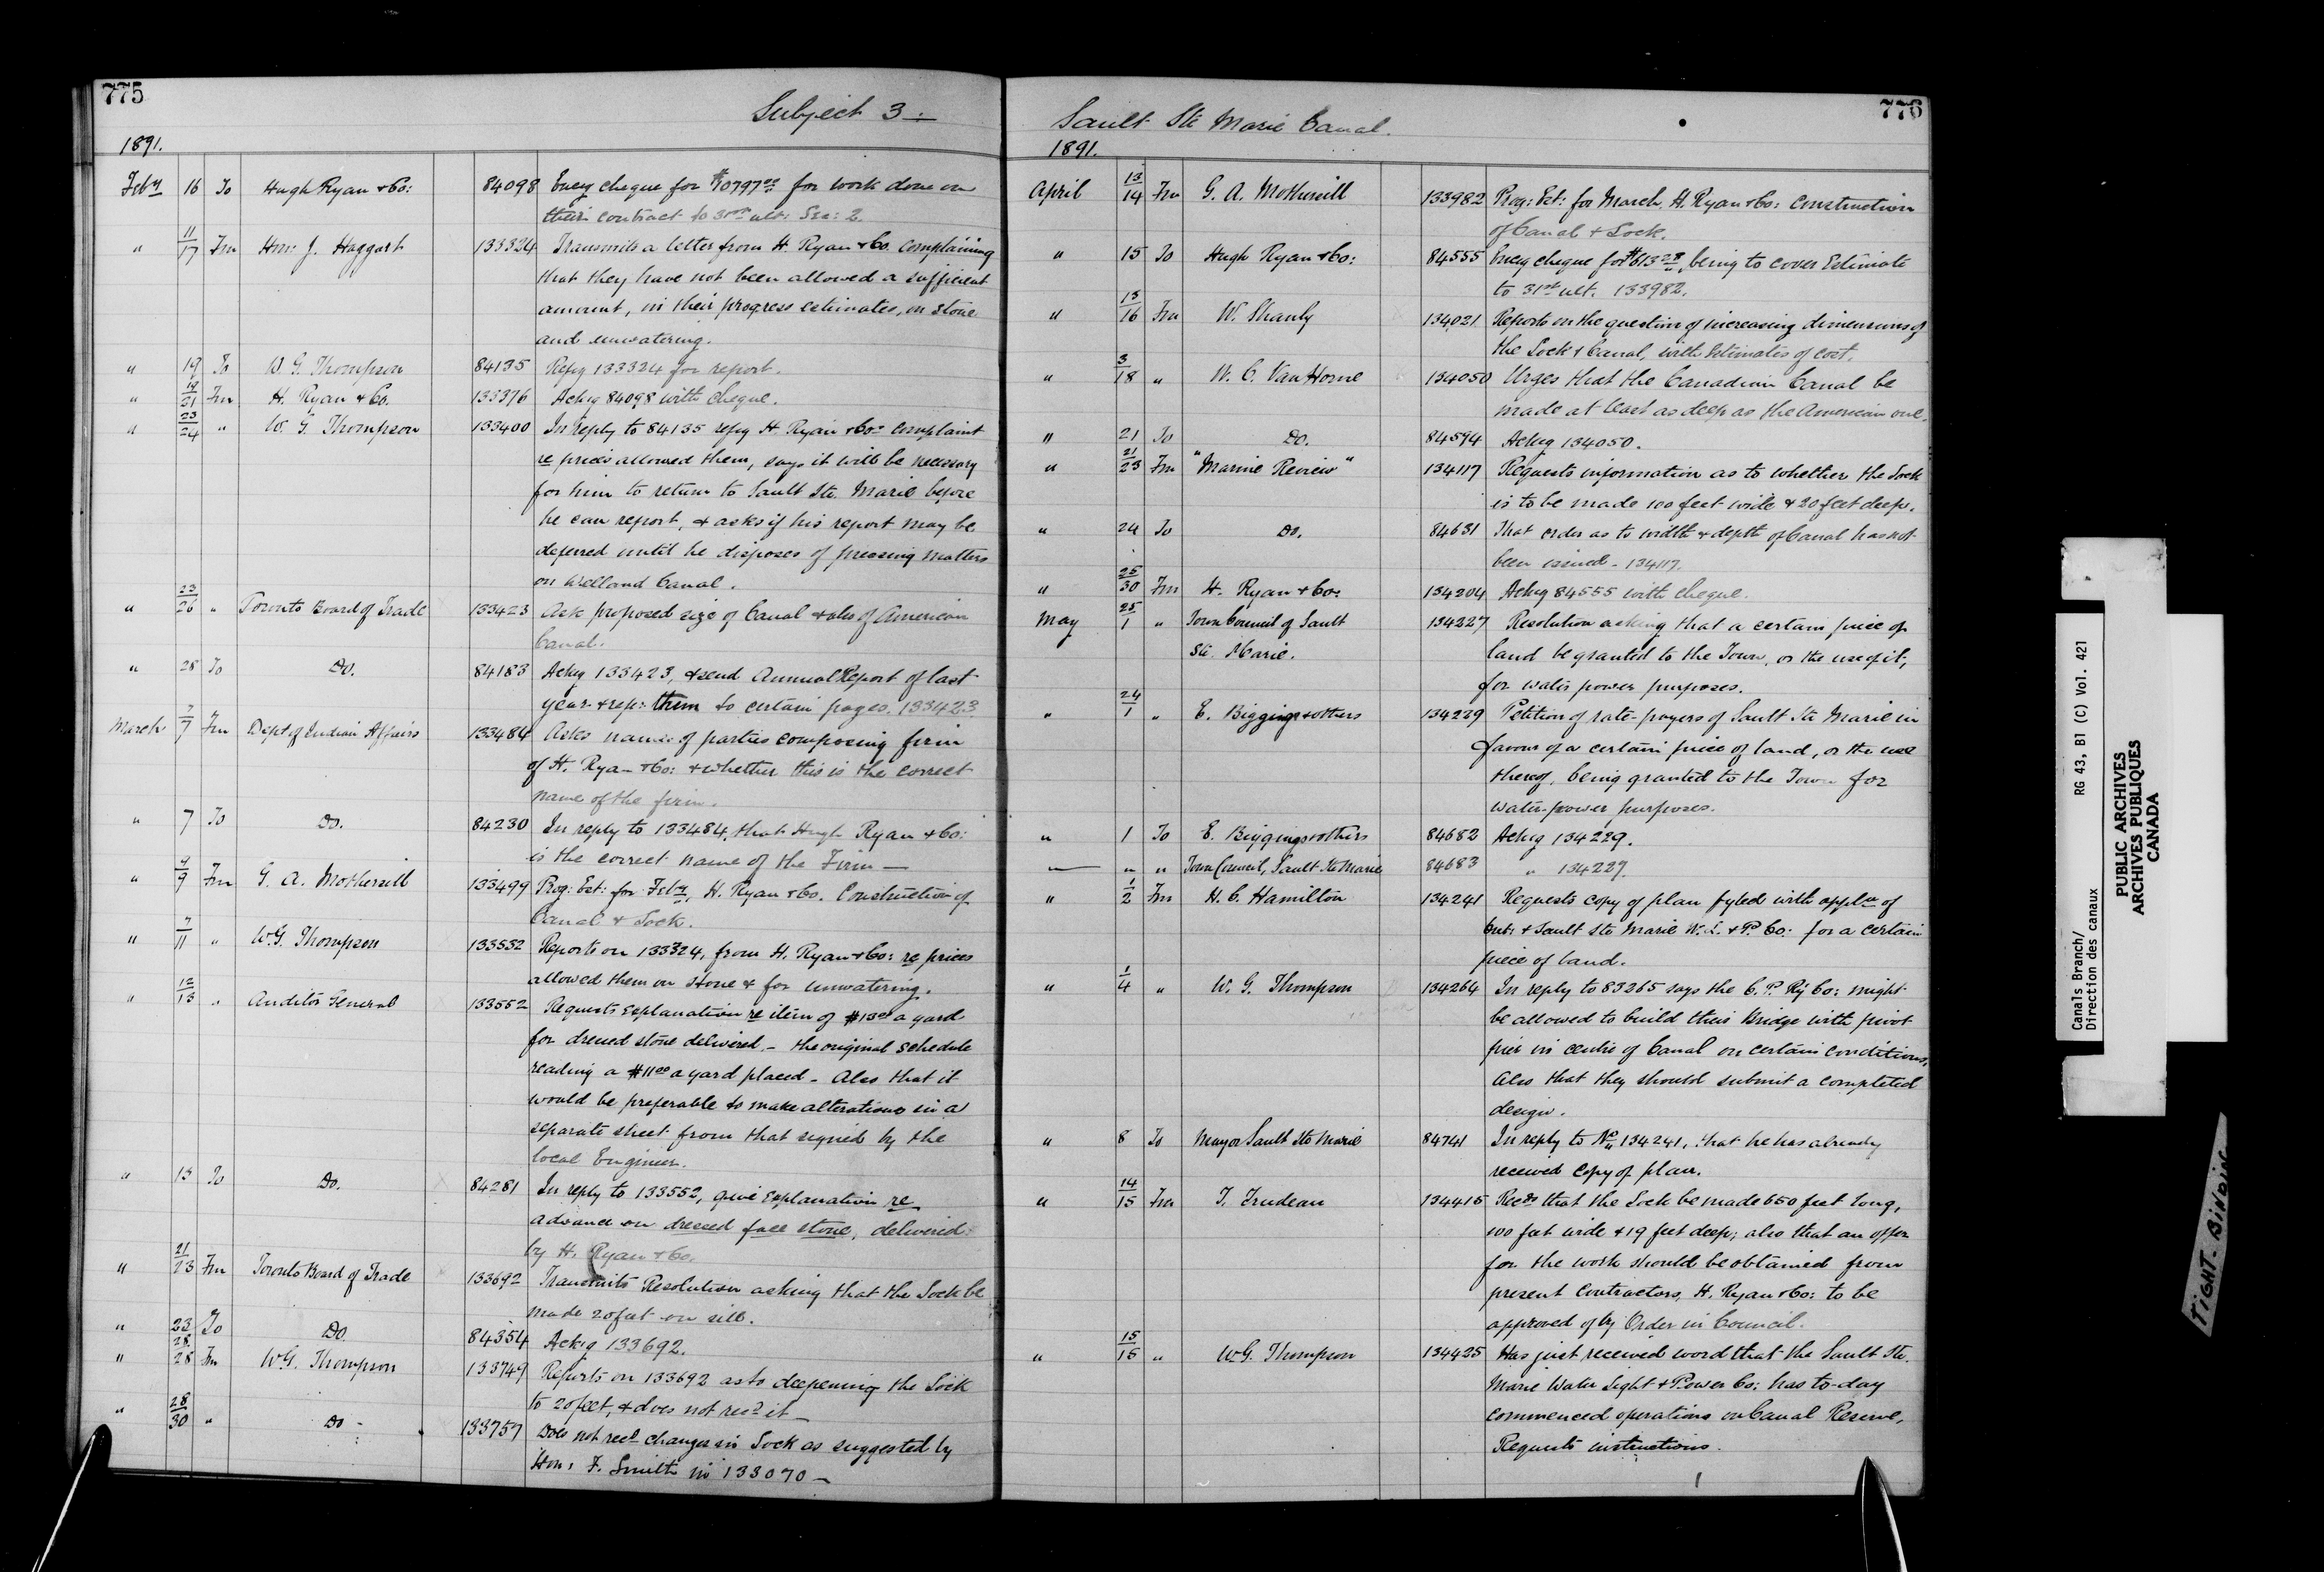 775
Subject 3:
1891.
Feby 16 To Hugh Ryan & Co: 84098 Encg cheque for $10797.00 for work done on
their contract to 31st ult: Sec: 2.
" 11/17 Fm Hon: J. Haggart 133324 Transmits a letter from H. Ryan & Co. complaining
that they have not been allowed a sufficient
amount, in their progress estimates, on stone
and unwatering.
" 19 To W. G. Thompson 84135 Refg 133324 for report.
" 19/21 Fm H. Ryan & Co. 133376 Ackg 84098 with cheque.
" 23/24 " W. G. Thompson 133400 In reply to 84135 refg H. Ryan & Co's complaint
re prices allowed them, says it will be necessary
for him to return to Sault Ste. Marie before
he can report, & asks if his report may be
deferred until he disposes of pressing matters
on Welland Canal.
" 23/26 " Toronto Board of Trade 133423 Ask proposed size of Canal & also of American
Canal.
" 28 To Do. 84183 Ackg 133423, & send Annual Report of last
year & refs: them to certain pages. 133423
March 7/7 Fm Dept of Indian Affairs 133484 Asks names of parties composing firm
of H. Ryan & Co: & whether this is the correct
name of the firm.
" 7 To Do. 84230 In reply to 133484, that Hugh Ryan & Co:
is the correct name of the Firm —
" 9/9 Fm G. A. Mothersill 133499 Prog: Est: for Feby, H. Ryan & Co. Construction of
Canal & Lock.
" 7/11 " W.G. Thompson 133532 Reports on 133324, from H. Ryan & Co: re prices
allowed them on stone & for unwatering.
" 12/13 " Auditor General 133552 Requests explanation re item of $13.00 a yard
for dressed stone delivered, - the original schedule
reading a $11.00 a yard placed - Also that it
would be preferable to make alterations in a
separate sheet from that signed by the
local Engineer.
" 13 To Do. 84281 In reply to 133552, give explanation re
advance on dressed face stone, delivered
by H. Ryan & Co.
" 21/23 Fm Toronto Board of Trade 133692 Transmits Resolution asking that the Lock be
made 20 feet on sill.
" 23 To Do 84354 Ackg 133692.
" 28/28 Fm W.G. Thompson 133749 Reports on 133692 as to deepening the Lock
to 20 feet, & does not recd it —
" 28/30 " Do - 133757 Does not recd changes in Lock as suggested by
Hon: F. Smith in 133070 —
776
Sault Ste Marie Canal.
1891.
April 13/14 Fm G. A. Mothersill 133982 Prog: Est: for March, H. Ryan & Co: Construction
of Canal & Lock.
" 15 To Hugh Ryan & Co: 84555 Encg cheque for $613.28, being to cover Estimate
to 31st ult. 133982.
" 15/16 Fm W. Shanly 134021 Reports on the question of increasing dimensions of
the Lock & Canal, with Estimates of cost.
" 3/18 " W. C. Van Horne 134050 Urges that the Canadian Canal be
made at least as deep as the American one.
" 21 To Do. 84594 Ackg 134050.
" 21/23 Fm "Marine Review" 134117 Requests information as to whether the Lock
is to be made 100 feet wide & 20 feet deep.
" 24 To Do. 84631 That order as to width & depth of Canal has not
been issued - 134117.
" 25/30 Fm H. Ryan & Co: 134204 Ackg 84555 with cheque.
May 25/1 " Town Council of Sault 134227 Resolution asking that a certain piece of
Ste. Marie. land be granted to the Town, or the use of it,
for water power purposes.
" 24/1 " E. Biggings & others 134229 Petition of rate-payers of Sault Ste Marie in
favour of a certain piece of land, or the use
thereof, being granted to the Town for
water-power purposes.
" 1 To E. Biggings & others 84682 Ackg 134229.
— " " Town Council, Sault Ste Marie 84683 " 134227.
" 1/2 Fm H. C. Hamilton 134241 Requests copy of plan fyled with applcn of
Ont: & Sault Ste Marie W. L. & P. Co: for a certain
piece of land.
" 1/4 " W. G. Thompson 134264 In reply to 83265 says the C. P. Ry Co: might
be allowed to build their Bridge with pivot
pier in centre of Canal on certain conditions,
Also that they should submit a completed
design.
" 8 To Mayor Sault Ste Marie 84741 In reply to No 134241, that he has already
received copy of plan.
" 14/15 Fm T. Trudeau 134415 Recds that the Lock be made 650 feet long,
100 feet wide & 19 feet deep; also that an offer
for the work should be obtained from
present Contractors, H. Ryan & Co: to be
approved of by Order in Council.
" 15/15 " W.G. Thompson 134425 Has just received word that the Sault Ste.
Marie Water Light & Power Co: has to-day
commenced operations on Canal Reserve,
Requests instructions.
Canals Branch/ RG 43, B1 (C) Vol. 421
Direction des canaux
PUBLIC ARCHIVES
ARCHIVES PUBLIQUES
CANADA
TIGHT BINDING